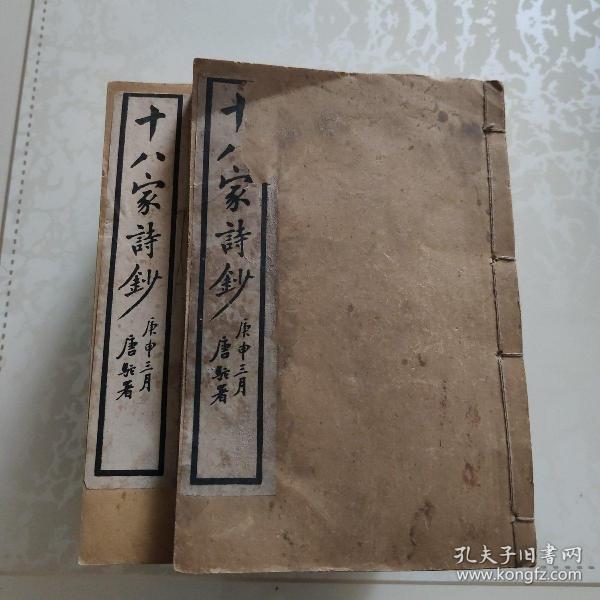 十八家詩鈔
庚申三月
唐駝署
十八家詩鈔
庚申三月
唐駝署
孔夫子旧書网
www.kongfz.com